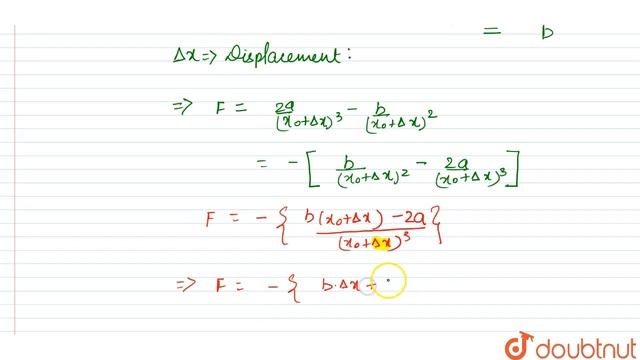 = b
Δx => Displacement :
=> F = 2a/(x₀+Δx)³ - b/(x₀+Δx)²
= - [ b/(x₀+Δx)² - 2a/(x₀+Δx)³ ]
F = - { b(x₀+Δx) - 2a/(x₀+Δx)³ }
=> F = - { b·Δx -
doubtnut